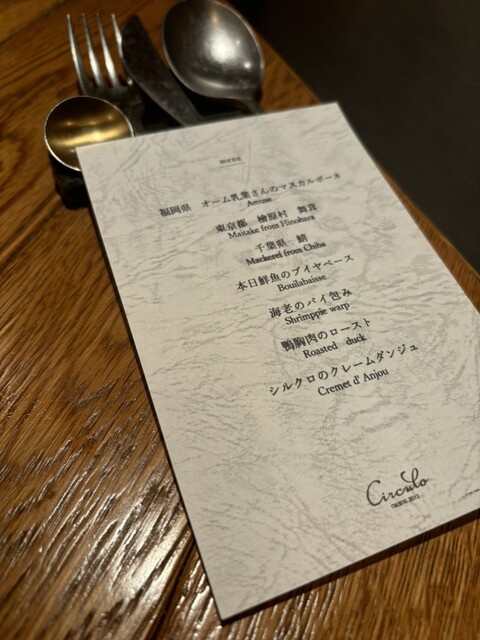 福岡県　オーム乳業さんのマスカルポーネ
Amuse
東京都　檜原村　舞茸
Maitake from Hinohara
千葉県　鯖
Mackerel from Chiba
本日鮮魚のブイヤベース
Bouilabaisse
海老のパイ包み
Shrimppie warp
鴨胸肉のロースト
Roasted duck
シルクロのクレームダンジュ
Cremet d' Anjou
Circulo